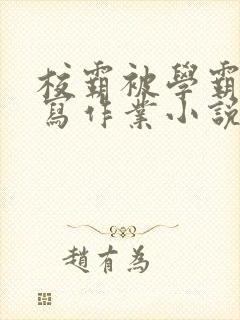 校霸被學霸
寫作業小説
趙有為